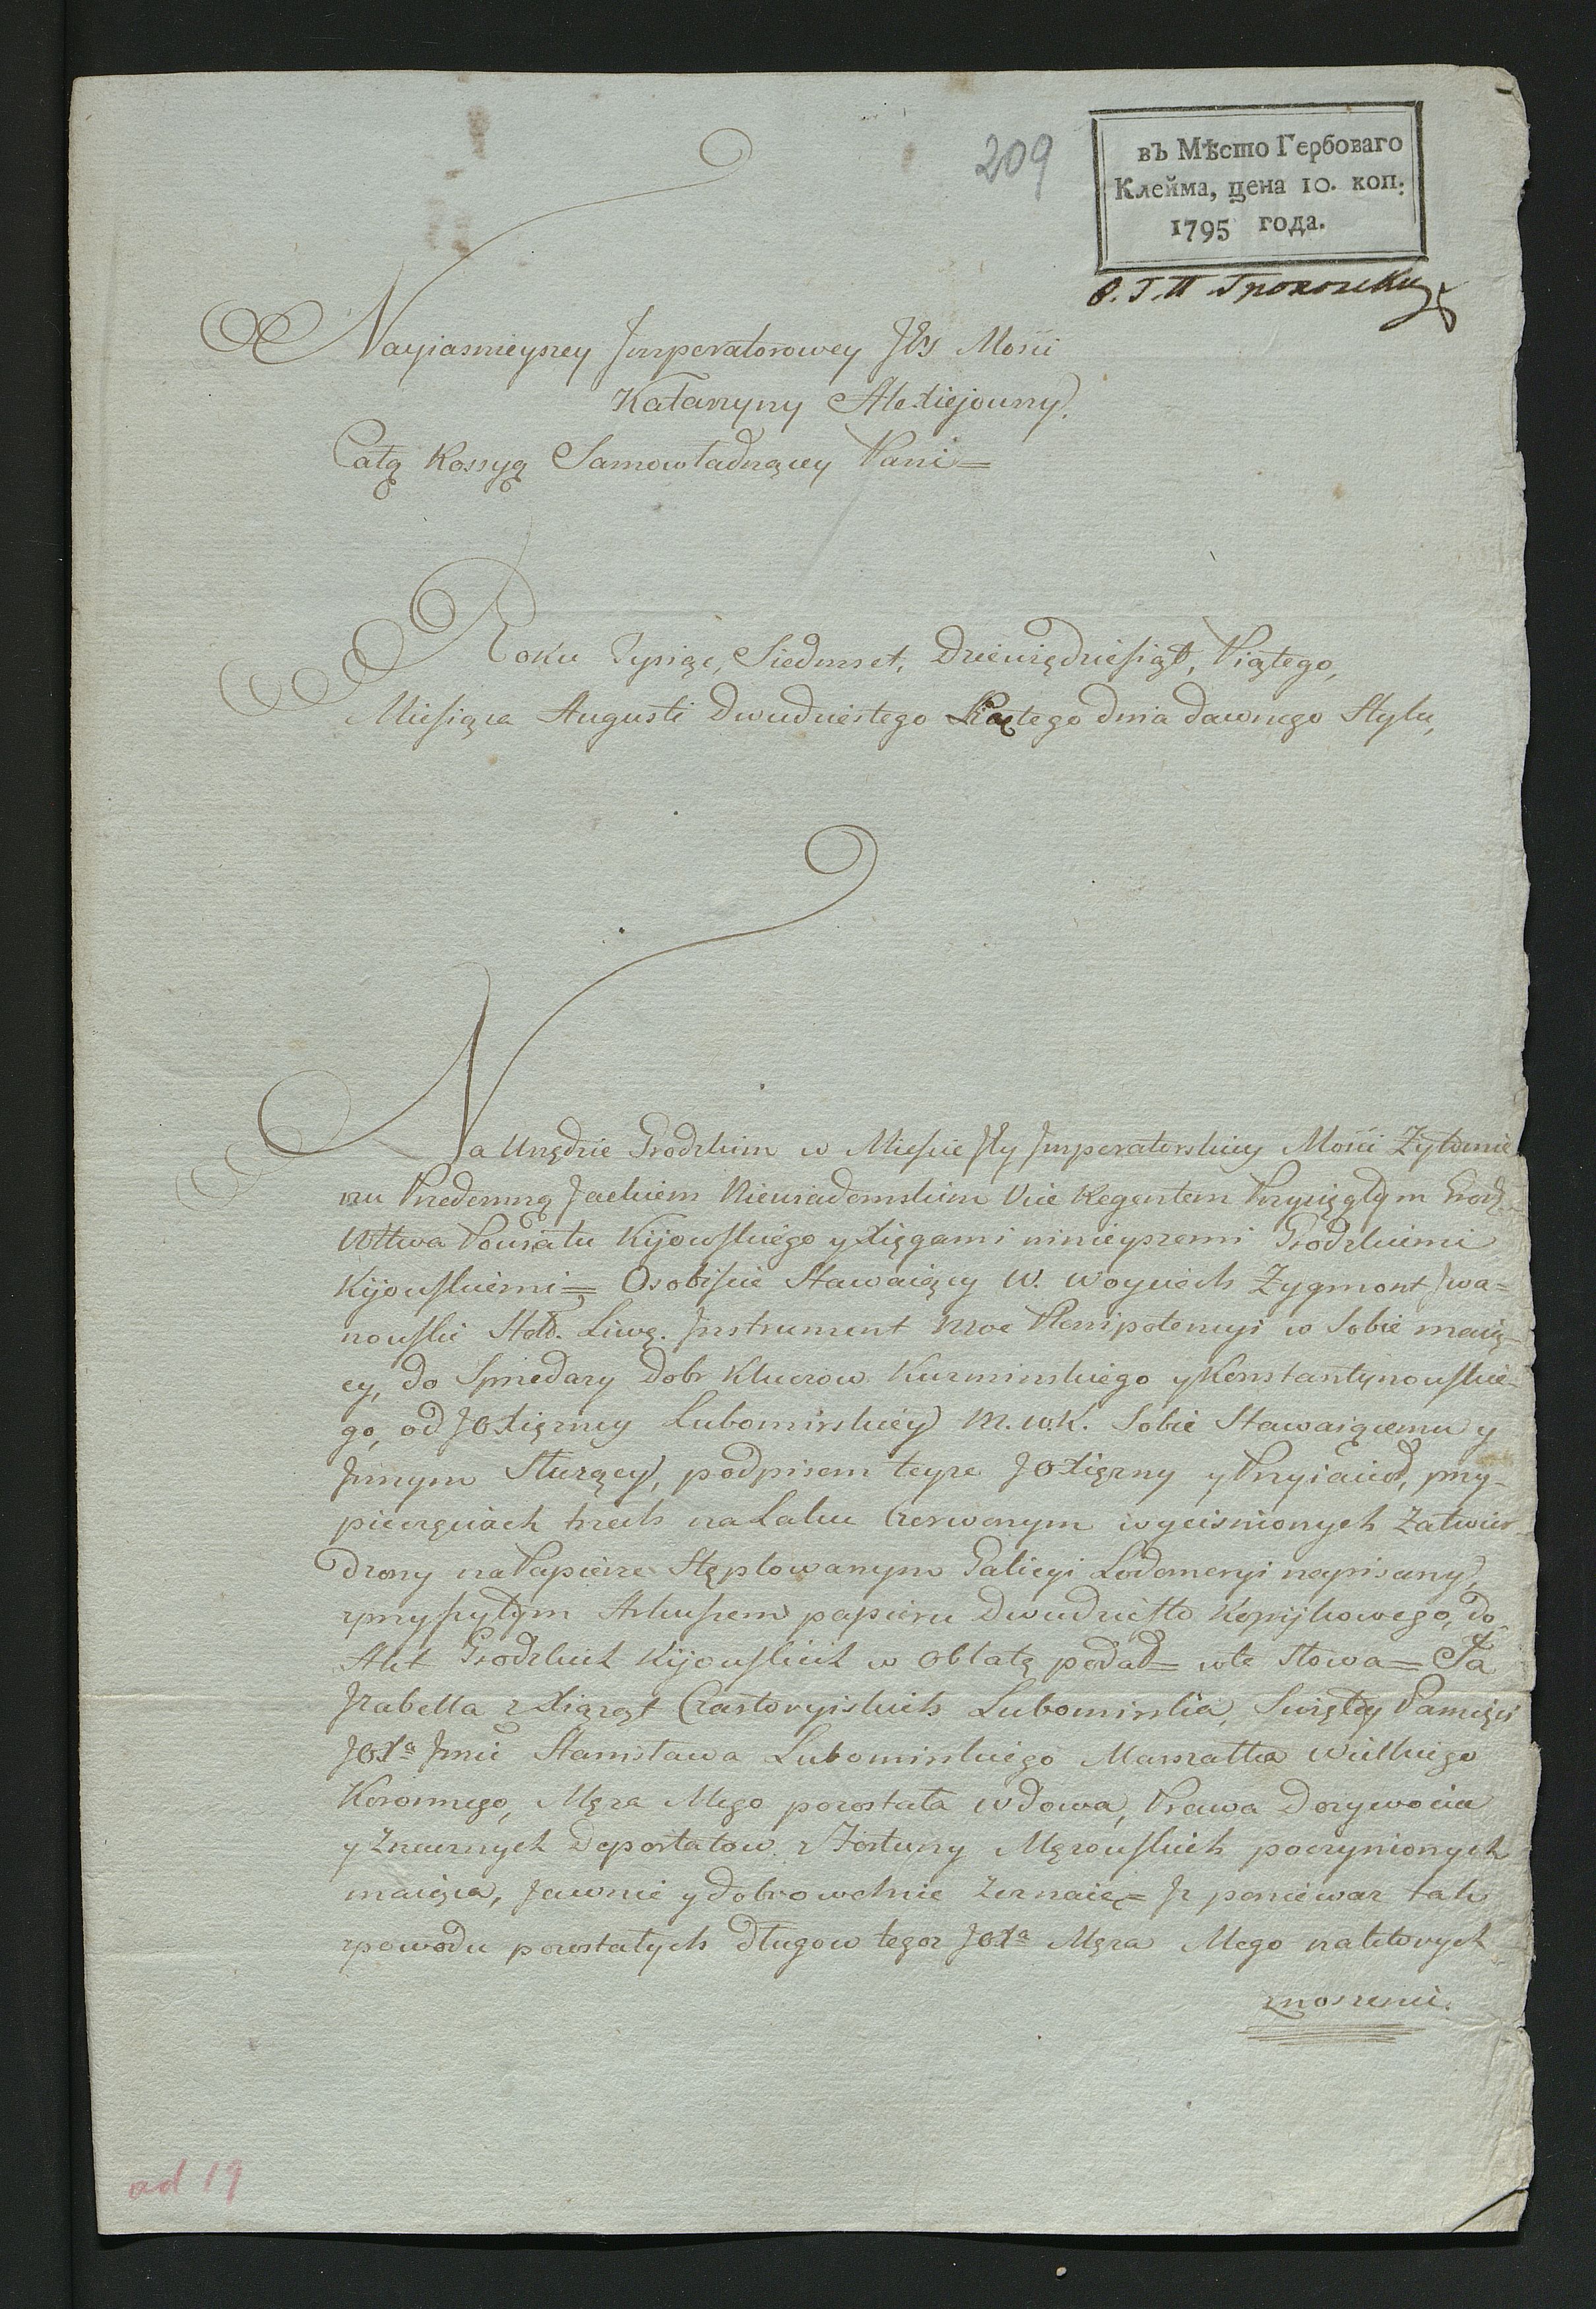 209
въ Мѣсто Гербоваго
Клейма, цена 10. коп.
1795 года.
Nayiasnieyszey Jmperatorowey JEy Mosci
Katarzyny Alexiejowny.
Całą Rossyą Samowładnącey Pani=
Roku Tysiąc, Siedmset, Dziewięćdziesiąt, Piątego,
Miesiąca Augusti Dwudziestego Piątego dnia dawnego Stylu,
Na Urzędzie Grodzkim w Mieście JEy Jmperatorskiey Mosci Zytomie-
rzu Przedemną Jackiem Niewiadomskim Vice Regentem Przysięgłym Grodz:
Wttwa Powiatu Kijowskiego y Xięgami ninieyszemi Grodzkiemi
Kijowskiemi= Osobiście Stawaiący W. Woyciech Zygmont Jwa=
nowski Stol. Liwc. Jnstrument Moc Plenipotencyi w Sobie maią-
cy, do Sprzedazy Dobr Kluczow Kuzminskiego y Konstantynowskie-
go, od JOXięzney Lubomirskiey M.W.K. Sobie Stawaiącemu y
Jnnym Służący, podpisem teyze JOXięzny y Przyiacioł, przy-
pieczęciach trzech na Laku Czerwonym wycisnionych Zatwier-
dzony na Papierze Stęplowanym Galicyi Lodomeryi napisany,
zprzyszytym Arkuszem papieru Dwudziesto Kopijkowego, do
Akt Grodzkich Kijowskich w Oblatę podał= wte Słowa= Ja
Jzabella z Xiążąt Czartoryiskich Lubomirska, Swiętey Pamięci
JOXa Jmci Stanisława Lubomirskiego Marszałka Wielkiego
Koronnego, Męza Mego pozostała wdowa, Prawa Dozywocia
y Znacznych Deportatow z Fortuny Męzowskich poczynionych
maiąca, Jawnie y dobrowolnie Zeznaię= Jz poniewaz tak
zpowodu pozostałych długow tegoz JOXa Męza Mego naktorych
znoszenie.
ad 19